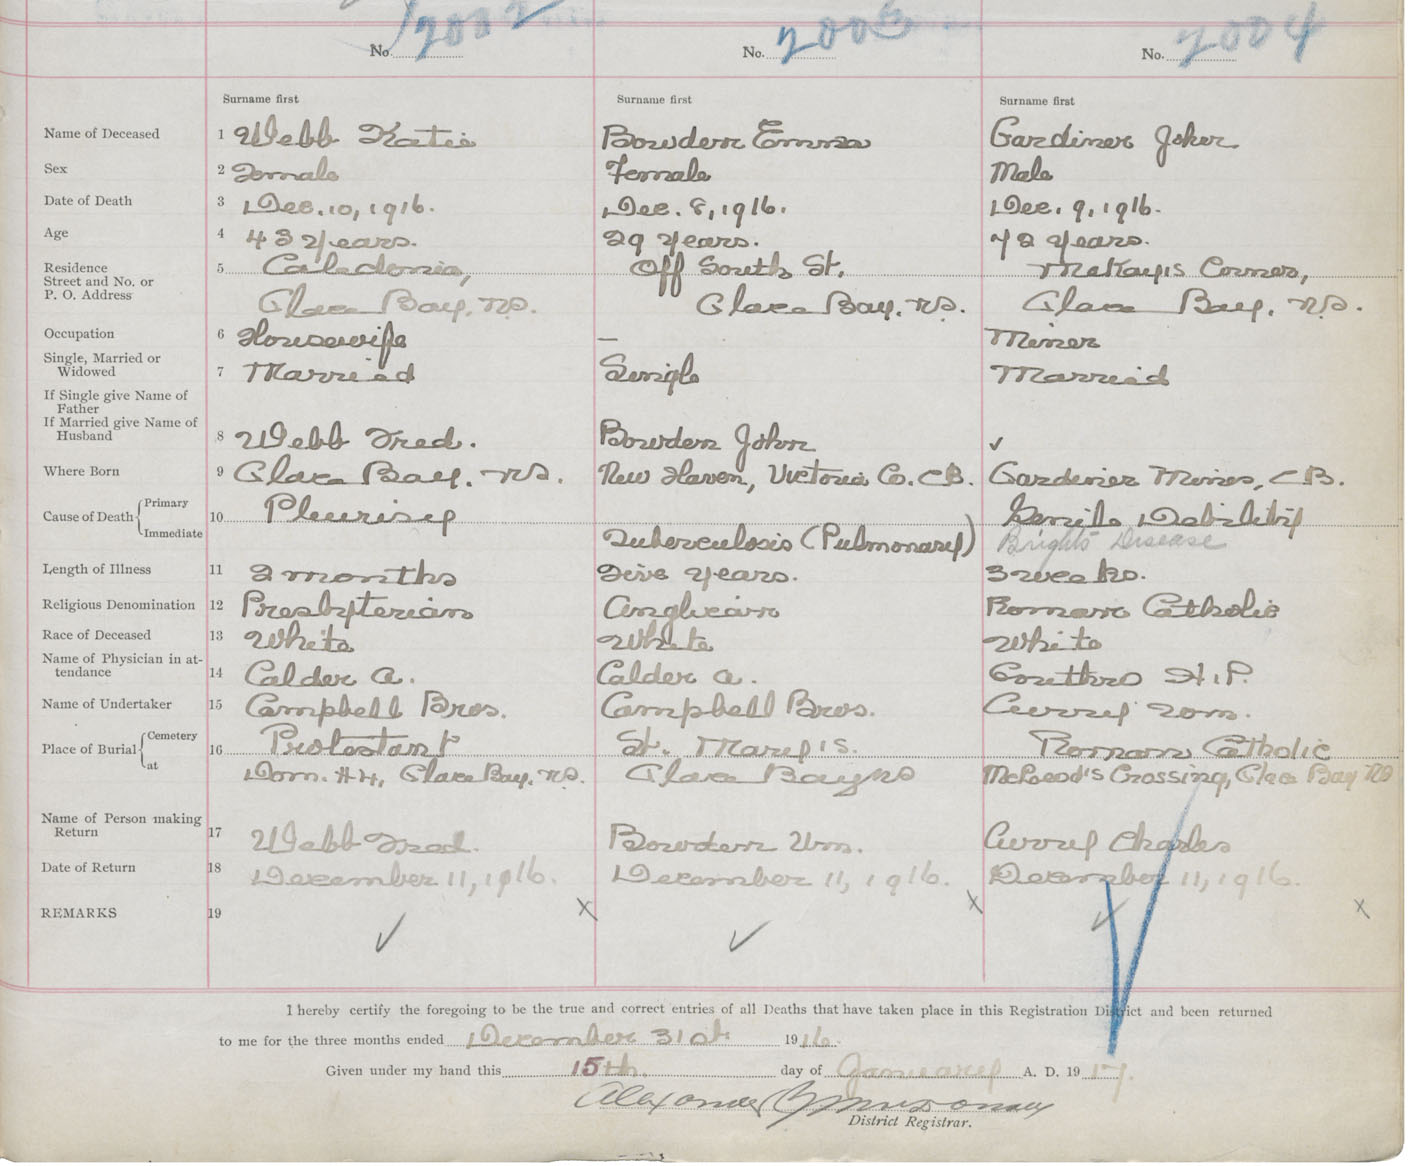 No. 2002 No. 2003 No. 2004
Surname first Surname first Surname first
Name of Deceased 1 Webb Katie Bowden Emma Gardiner Joker
Sex 2 Female Female Male
Date of Death 3 Dec. 10, 1916. Dec. 8, 1916. Dec. 9, 1916.
Age 4 43 years. 29 years. 72 years.
Residence 5 Caledonia, Off South St. McKay's Corner,
Street and No. or
P. O. Address Glace Bay, N.S. Glace Bay, N.S. Glace Bay, N.S.
Occupation 6 Housewife — Miner
Single, Married or
Widowed 7 Married Single Married
If Single give Name of
Father
If Married give Name of
Husband 8 Webb Fred. Bowden John ✓
Where Born 9 Glace Bay, N.S. New Haven, Victoria Co. C.B. Gardiner Mines, C.B.
Cause of Death { Primary 10 Pleurisy Senile Debility
Immediate Tuberculosis (Pulmonary) Brights Disease
Length of Illness 11 2 months Five years. 3 weeks.
Religious Denomination 12 Presbyterian Anglican Roman Catholic
Race of Deceased 13 White White White
Name of Physician in at-
tendance 14 Calder A. Calder A. Gouthro H.P.
Name of Undertaker 15 Campbell Bros. Campbell Bros. Curry
Place of Burial { Cemetery 16 Protestant St. Mary's. Roman Catholic
at Dom. #4, Glace Bay, N.S. Glace Bay NS McLeod's Crossing, Glace Bay NS
Name of Person making
Return 17 Webb Fred. Bowden Wm. Curry Charles
Date of Return 18 December 11, 1916. December 11, 1916. December 11, 1916.
REMARKS 19 ✓ x ✓ x ✓ x
I hereby certify the foregoing to be the true and correct entries of all Deaths that have taken place in this Registration District and been returned
to me for the three months ended December 31st 1916.
Given under my hand this 15th. day of January A. D. 1917.
Alexander
District Registrar.